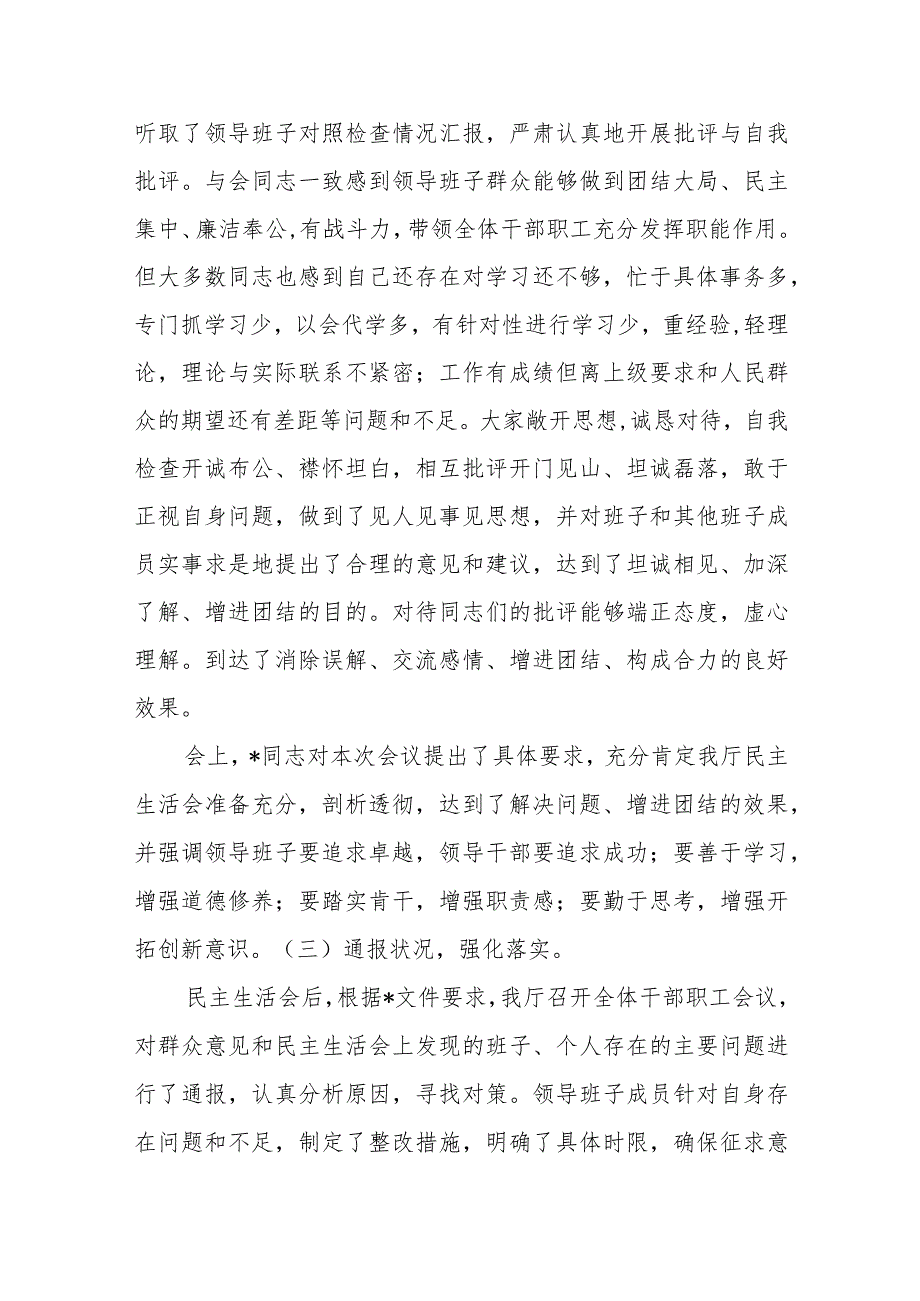 听取了领导班子对照检查情况汇报，严肃认真地开展批评与自我
批评。与会同志一致感到领导班子群众能够做到团结大局、民主
集中、廉洁奉公,有战斗力，带领全体干部职工充分发挥职能作用。
但大多数同志也感到自己还存在对学习还不够，忙于具体事务多，
专门抓学习少，以会代学多，有针对性进行学习少，重经验,轻理
论，理论与实际联系不紧密；工作有成绩但离上级要求和人民群
众的期望还有差距等问题和不足。大家敞开思想,诚恳对待，自我
检查开诚布公、襟怀坦白，相互批评开门见山、坦诚磊落，敢于
正视自身问题，做到了见人见事见思想，并对班子和其他班子成
员实事求是地提出了合理的意见和建议，达到了坦诚相见、加深
了解、增进团结的目的。对待同志们的批评能够端正态度，虚心
理解。到达了消除误解、交流感情、增进团结、构成合力的良好
效果。
会上，*同志对本次会议提出了具体要求，充分肯定我厅民主
生活会准备充分，剖析透彻，达到了解决问题、增进团结的效果，
并强调领导班子要追求卓越，领导干部要追求成功；要善于学习，
增强道德修养；要踏实肯干，增强职责感；要勤于思考，增强开
拓创新意识。（三）通报状况，强化落实。
民主生活会后，根据*文件要求，我厅召开全体干部职工会议，
对群众意见和民主生活会上发现的班子、个人存在的主要问题进
行了通报，认真分析原因，寻找对策。领导班子成员针对自身存
在问题和不足，制定了整改措施，明确了具体时限，确保征求意